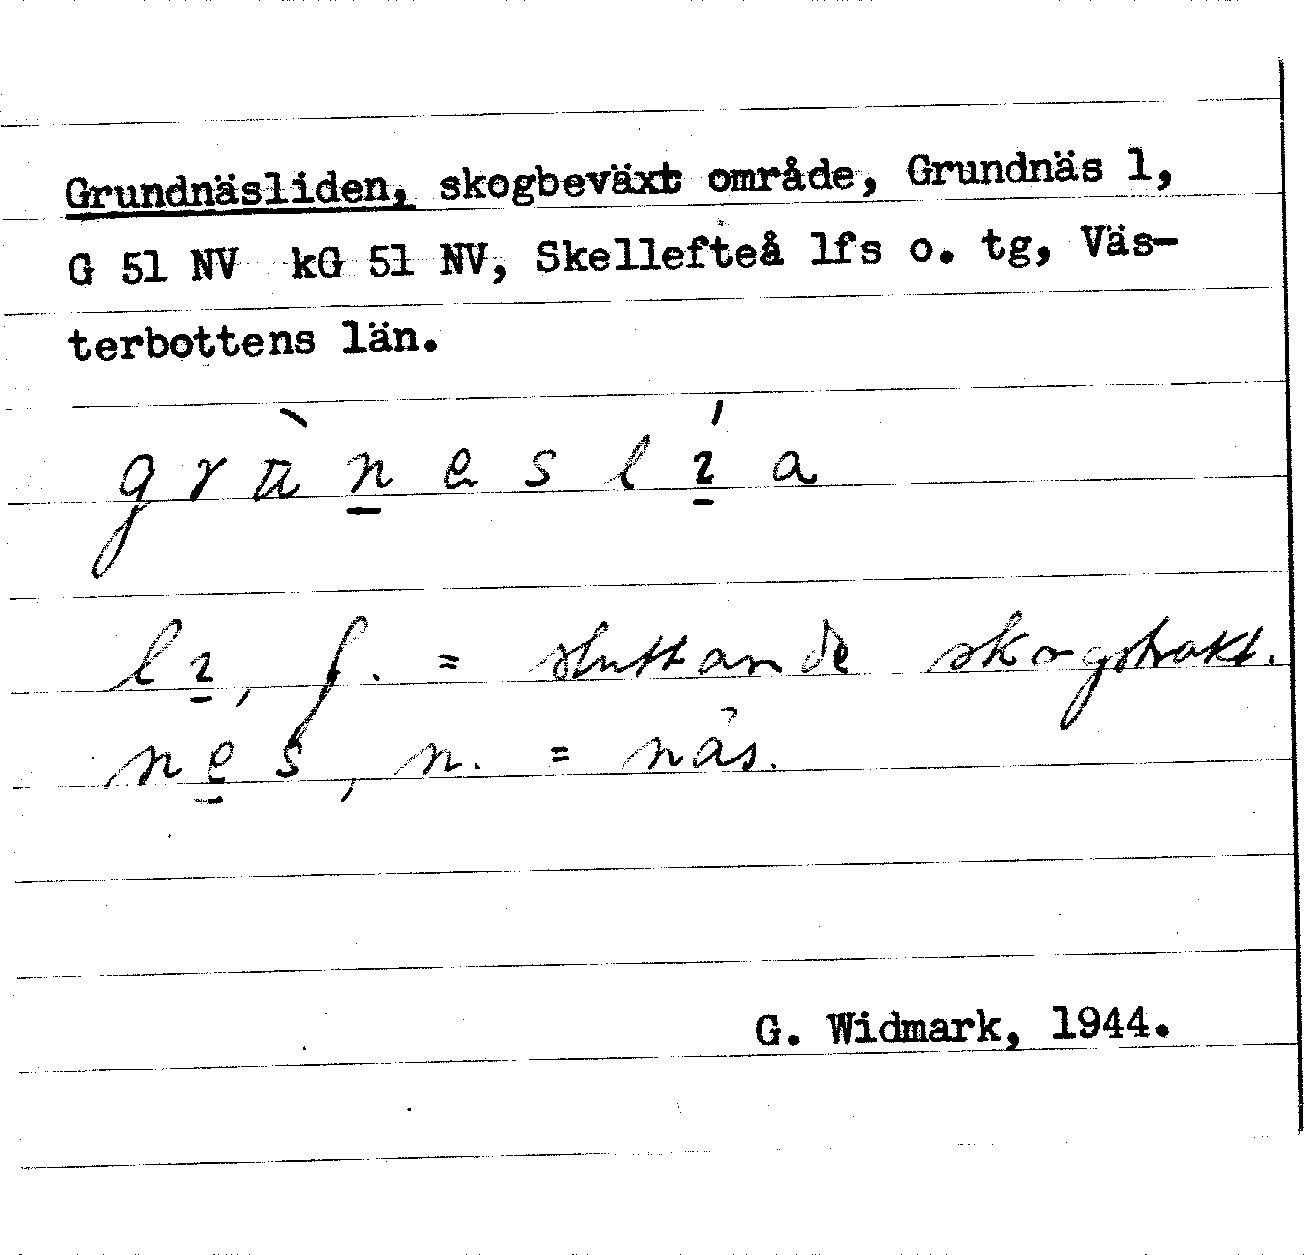 Grundnäsliden, skogbeväxt område, Grundnäs 1,
G 51 NV kG 51 NV, Skellefteå lfs o. tg, Väs-
terbottens län.
, f. = sluttande skogstrakt.
nes, n. = näs.
G. Widmark, 1944.